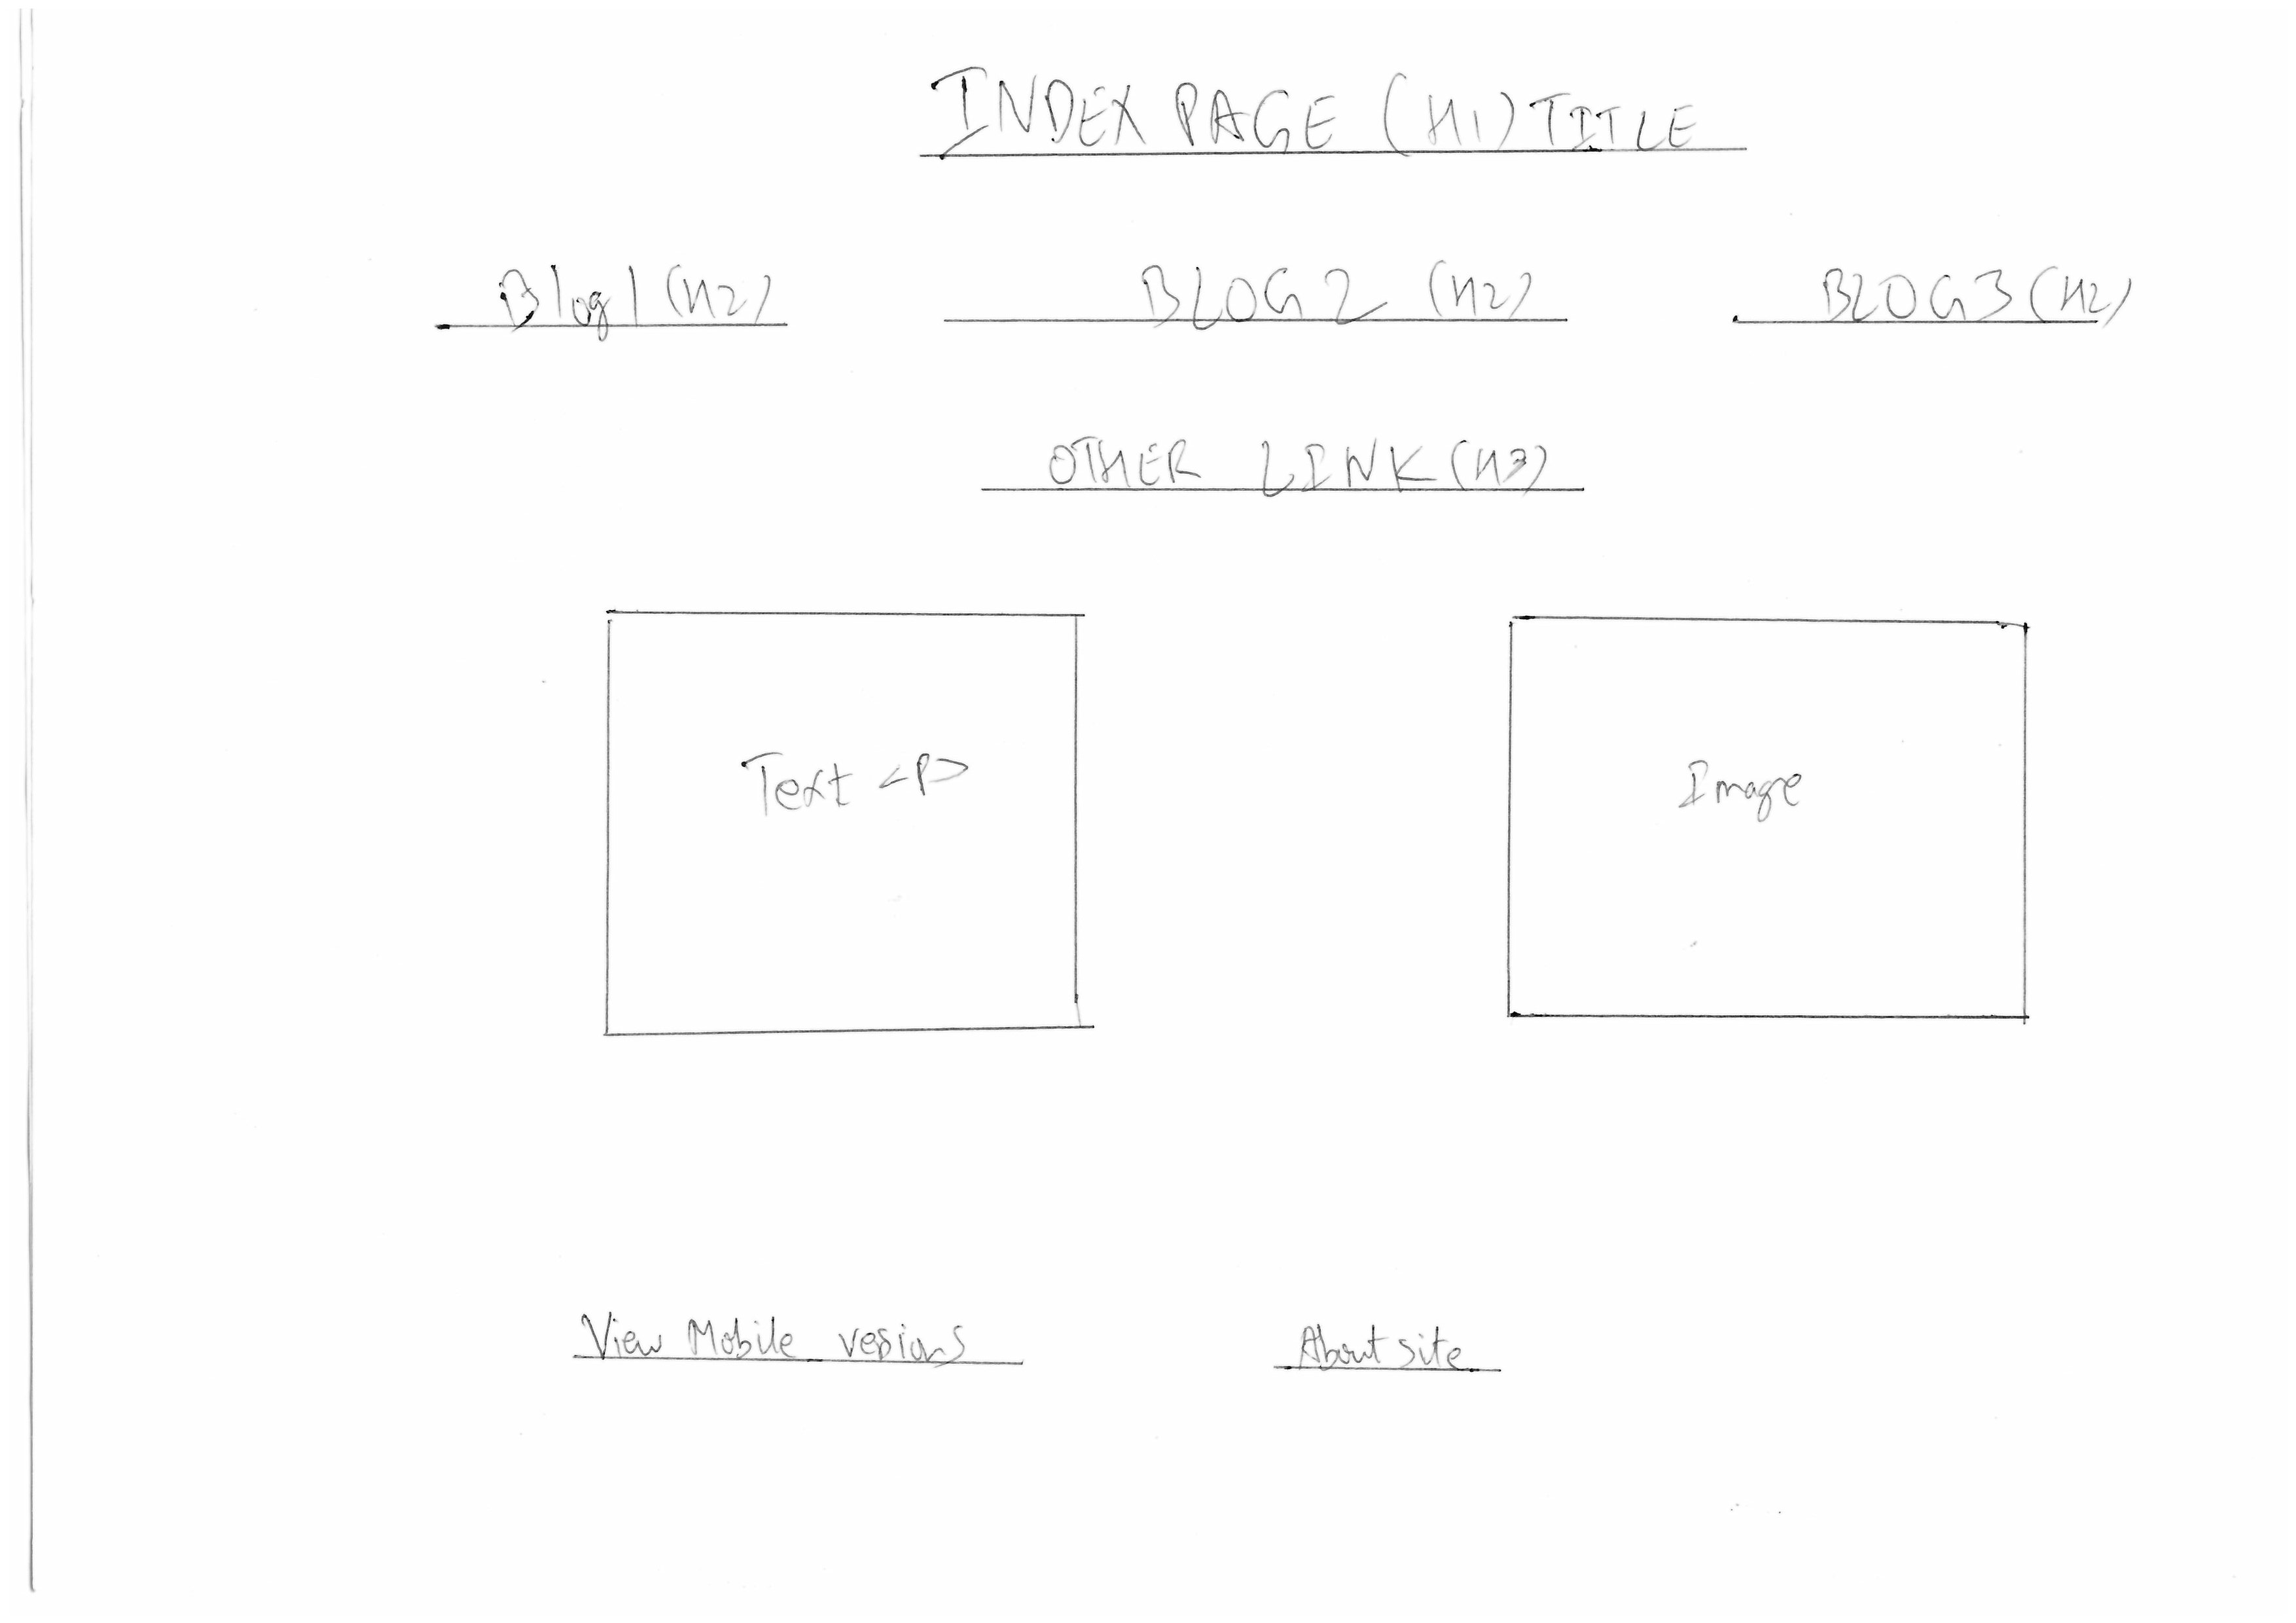 INDEX PAGE (H1) TITLE
Blog1 (H2) BLOG2 (H2) BLOG3 (H2)
OTHER LINK (H3)
Text <P> Image
View Mobile vesions About site